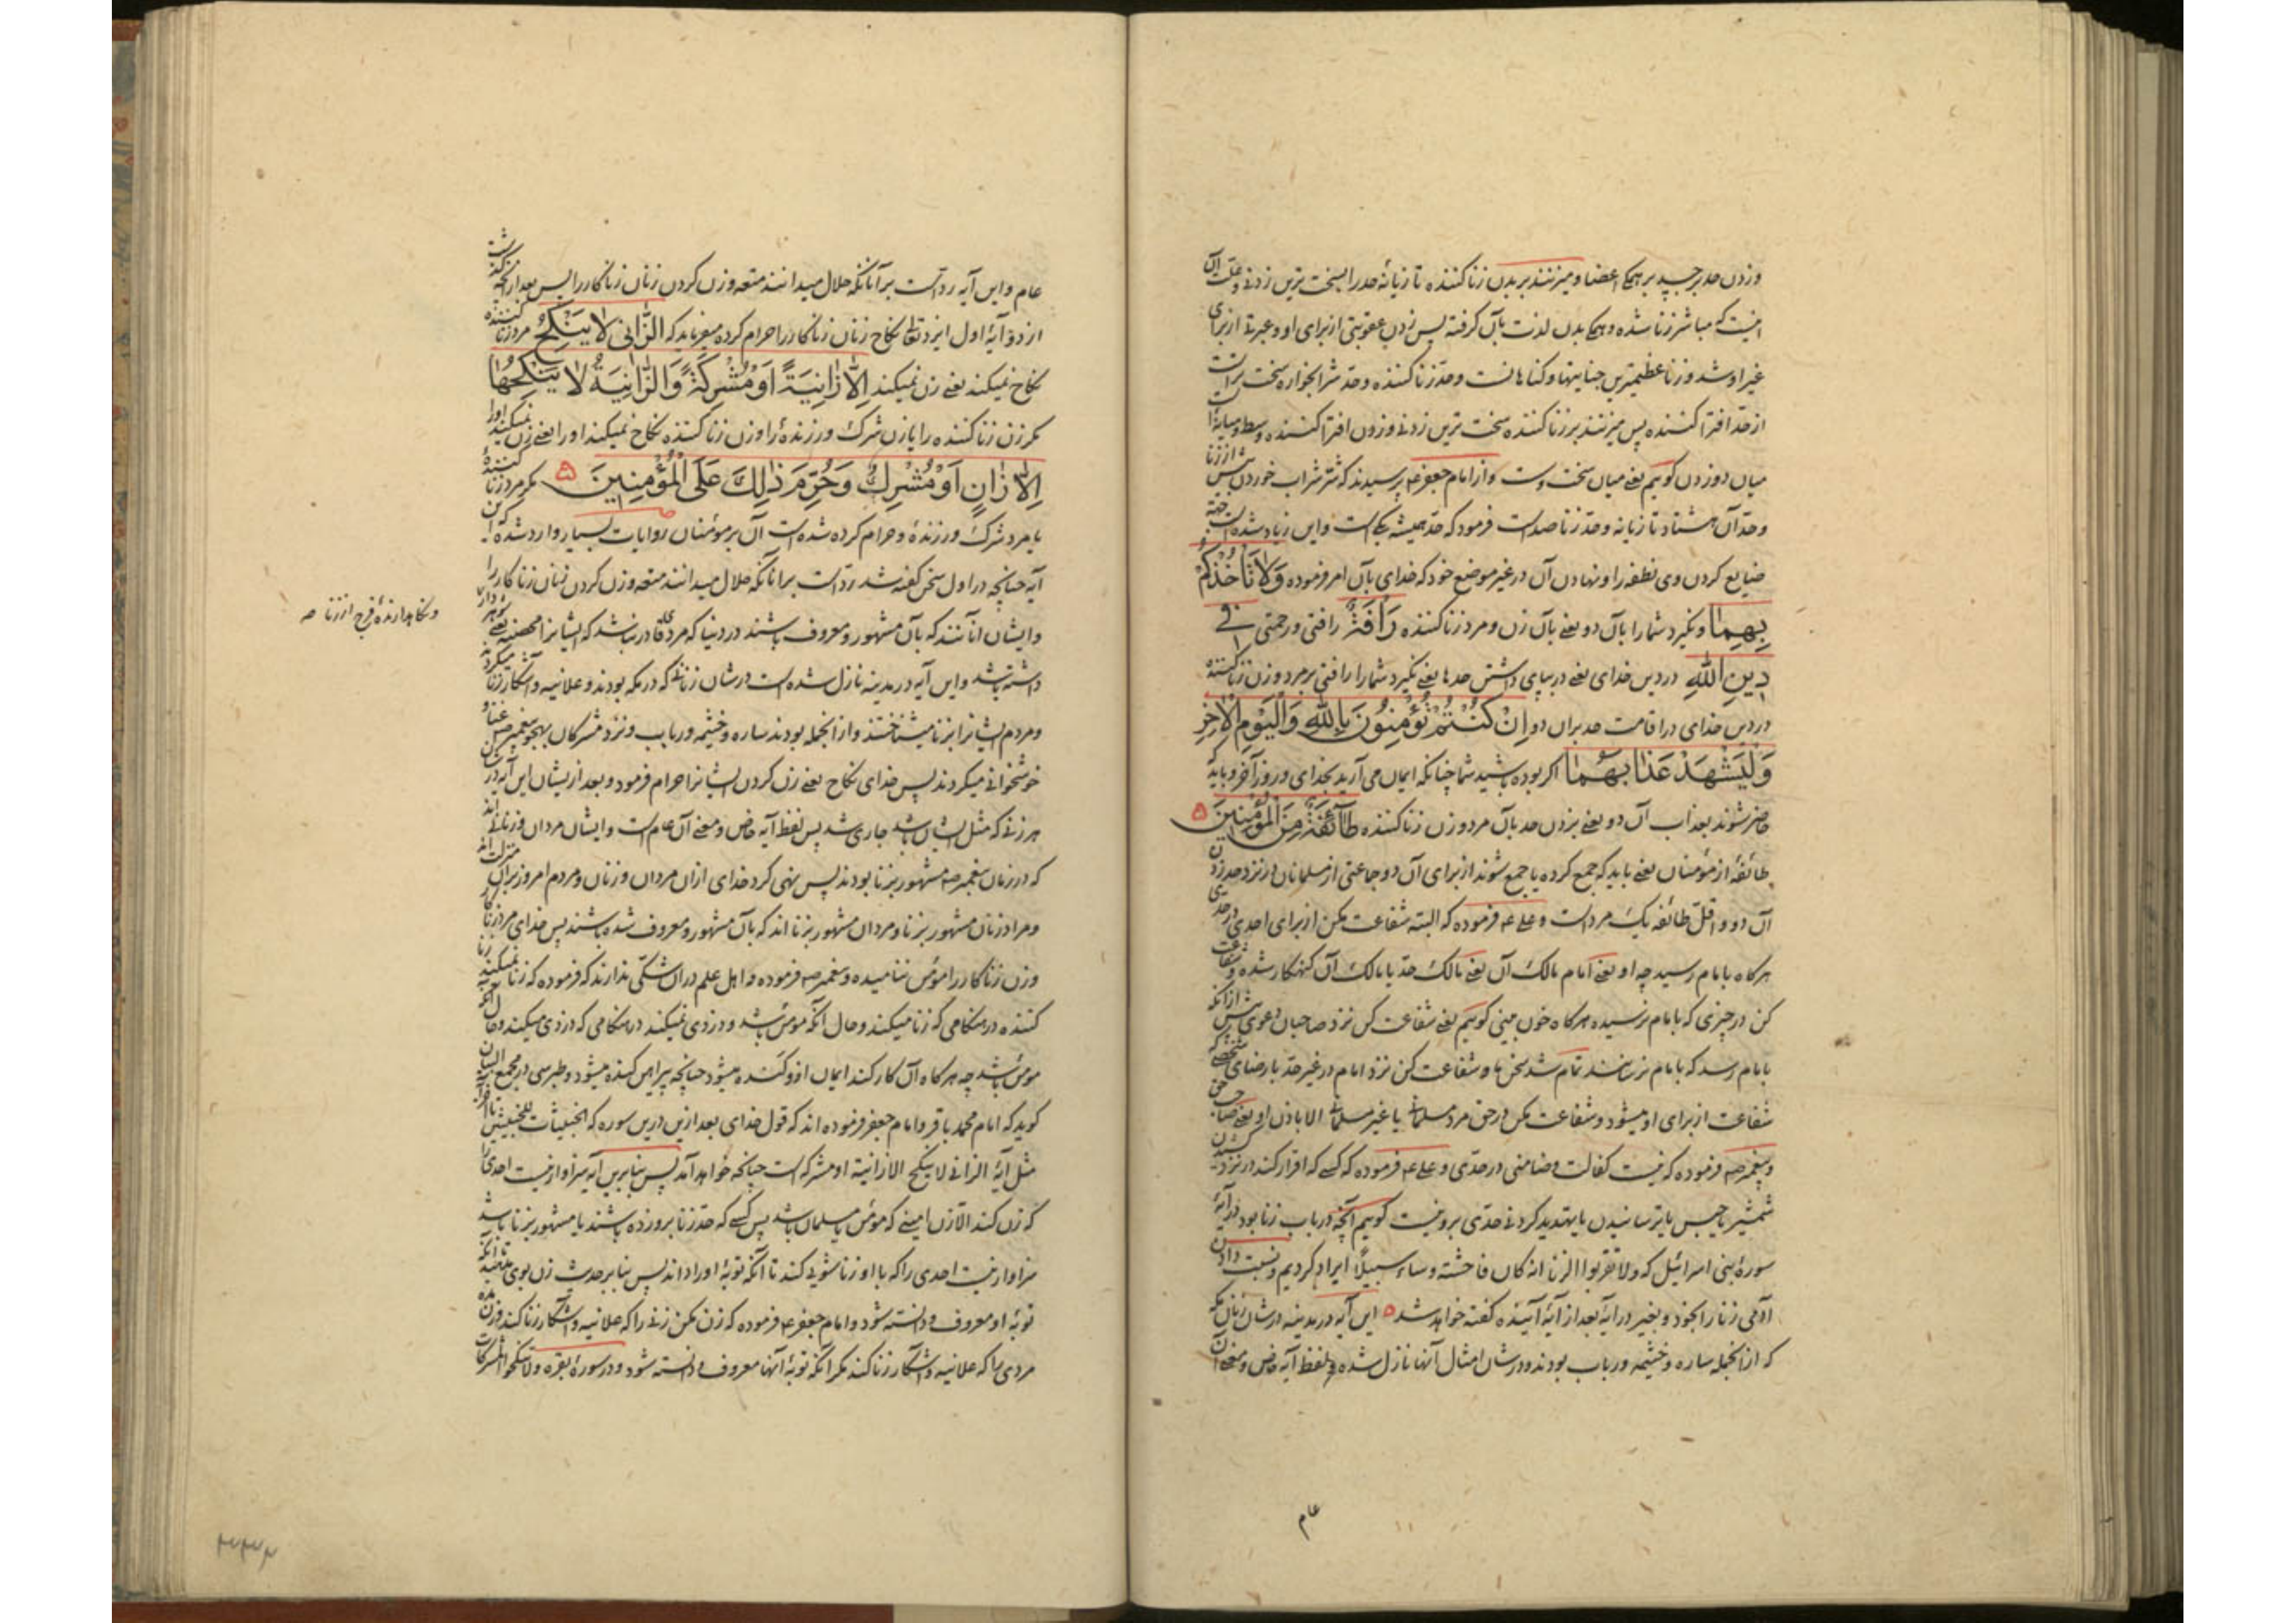 وزدن حد بر جسد بر همهٔ اعضا و میزنند بر بدن زنا کننده تازیانهٔ حد را بسخت ترین زدنی و علت آن
اینست که مباشر زنا شده و همهٔ بدن لذت بآن گرفته پس زدن عقوبتی از برای او و عبرتی از برای
غیر او شد و زنا عظیمترین جنایتها و کناهانست و حد زنا کننده و حد شرابخواره سخت تر است
از حد افترا کننده پس میزنند بر زنا کننده سخت ترین زدنی و زدن افترا کننده وسط و میانهٔ
میان دو زدن کوییم یعنی میان سخت و سست و از امام جعفر ع پرسیدند که شر شراب خوردن بیش از زنا
و حد آن هشتاد تازیانه و حد زنا صد است فرمود که حد همیشه یکی است و این زیاد شده است بجهة
ضایع کردن وی نطفه را و نهادن آن در غیر موضع خود که خدای بآن امر فرموده وَلَا تَأْخُذْكُمْ
بِهِمَا و نکیرد شما را بآن دو یعنی بآن زن و مرد زنا کننده رَأْفَةٌ رافتی و رحمتی فِي
دِينِ اللَّهِ در دین خدای یعنی در بپای داشتن حدها یعنی نکیرد شما را رافتی بر مرد و زن زنا کننده
در دین خدای در اقامت حد بران دو إِنْ كُنْتُمْ تُؤْمِنُونَ بِاللَّهِ وَالْيَوْمِ الْآخِرِ
وَلْيَشْهَدْ عَذَابَهُمَا اکر بوده باشید شما چنانکه ایمان می آرید بخدای و روز آخر و باید
حاضر شوند بعذاب آن دو یعنی بزدن حد بآن مرد و زن زنا کننده طَائِفَةٌ مِنَ الْمُؤْمِنِينَ
طائفهٔ از مؤمنان یعنی باید که جمع کرده یا جمع شوند از برای آن دو جماعتی از مسلمانان در نزد حد زدن
آن دو و اقل طائفه یک مرد است و علی ع فرموده که البته شفاعت مکن از برای احدی در حدی
هر کاه بامام رسید چه او یعنی امام مالک آن یعنی مالک حد یا مالک آن کنهکار شده و شفاعت
کن در چیزی که بامام نرسیده هر کاه خون بینی کوییم یعنی شفاعت کن نزد صاحبان دعوی پیش از آنکه
بامام رسد که بامام نرسانند تمام شد سخن ما و شفاعت کن نزد امام در غیر حد با رضای شخصی که
شفاعت از برای او میشود و شفاعت مکن در حق مرد مسلمان یا غیر مسلمان الا باذن او یعنی صاحب حق
و پیغمبر ص فرموده که نیست کفالت و ضامنی در حدی و علی ع فرموده که کسی که اقرار کند در نزد کشیدن
شمشیر یا حبس یا ترسانیدن یا بتهدید کردنی حدی برو نیست کوییم آنچه در باب زنا بود در آیهٔ
سورهٔ بنی اسرائیل که ولا تقربوا الزنا انه کان فاحشة وساء سبیلاً ایراد کردیم و نسبت دادن
آدمی زنا را بخود و بغیر در آیهٔ بعد از آیهٔ آینده کفته خواهد شد این آیه در مدینه در شان زنان مکه
که از انجمله ساره و خیثمه و رباب بودند و در شان امثال آنها نازل شده و لفظ آیه خاص و معنی آن
عام
عام و این آیه رد است بر آنانکه حلال میدانند متعه و زن کردن زنان زنا کار را پس بعد از آنکه کذشت
از دو آیهٔ اول ایزد تعالی نکاح زنان زنا کار را حرام کرده میفرماید که الزَّانِي لَا يَنْكِحُ مرد زنا کننده
نکاح نمیکند یعنی زن نمیکند إِلَّا زَانِيَةً أَوْ مُشْرِكَةً وَالزَّانِيَةُ لَا يَنْكِحُهَا
مکر زن زنا کننده را یا زن شرک ورزنده را و زن زنا کننده نکاح نمیکند او را یعنی زن نمیکند او را
إِلَّا زَانٍ أَوْ مُشْرِكٌ وَحُرِّمَ ذَلِكَ عَلَى الْمُؤْمِنِينَ مکر مرد زنا کنندهٔ
یا مرد شرک ورزندهٔ و حرام کرده شده است آن بر مؤمنان روایات بسیار وارد شده که این
آیه چنانچه در اول سخن کفته شد رد است بر انانکه حلال میدانند متعه و زن کردن زنان زنا کار را
و ایشان آنانند که بآن مشهور و معروف باشند در دنیا که مرد قادر نباشد که ایشانرا محصنه یعنی شوهر دار
و نکاهدارندهٔ فرج از زنا صح
داشته باشد و این آیه در مدینه نازل شده است در شان زنانی که در مکه بودند و علانیه و آشکار زنا میکردند
و مردم ایشانرا بزنا میشناختند و از انجمله بودند ساره و خیثمه و رباب و نزد مشرکان بهجو پیغمبر ص غنا و
خوشخوانی میکردند پس خدای نکاح یعنی زن کردن ایشانرا حرام فرمود و بعد از یشان این آیه در شان
هر زنی که مثل ایشان باشد جاری شد پس لفظ آیه خاص و معنی آن عام است و ایشان مردان و زنانی اند
که در زمان پیغمبر ص مشهور بزنا بودند پس نهی کرد خدای ازان مردان و زنان و مردم امروز بران منزلت اند
و مراد زنان مشهور بزنا و مردان مشهور بزنا اند که بآن مشهور و معروف شده باشند پس خدای مرد زنا کار
و زن زنا کار را مؤمن ننامیده و پیغمبر ص فرموده و اهل علم دران شکی ندارند که فرموده که زنا نمیکند زنا
کننده در هنکامی که زنا میکند و حال آنکه مؤمن باشد و دزدی نمیکند در هنکامی که دزدی میکند و حال آنکه
مؤمن باشد چه هر کاه آن کار کند ایمان ازو کنده میشود چنانچه پیراهن کنده میشود و طبرسی در مجمع البیان
کوید که امام محمد باقر و امام جعفر فرموده اند که قول خدای بعد ازین درین سوره که الخبیثات للخبیثین تا آخر
مثل آیهٔ الزانی لا ینکح الا زانیة او مشرکه است چنانچه خواهد آمد پس بنابرین آیه سزاوار نیست احدی را
که زن کند الا زن امینی که مؤمن یا مسلمان باشد پس کسی که حد زنا برو زده باشند یا مشهور بزنا باشد
سزاوار نیست احدی را که با او زناشوئی کند تا آنکه توبهٔ او را داند پس بنا بر حدیث زن بوی ندهند تا آنکه
توبهٔ او معروف و دانسته شود و امام جعفر ع فرموده که زن مکن زنی را که علانیه و آشکار زنا کند و زن مده
مردی را که علانیه و آشکار زنا کند مکر آنکه توبهٔ آنها معروف و دانسته شود و در سورهٔ بقره ولا تنکحوا المشرکات